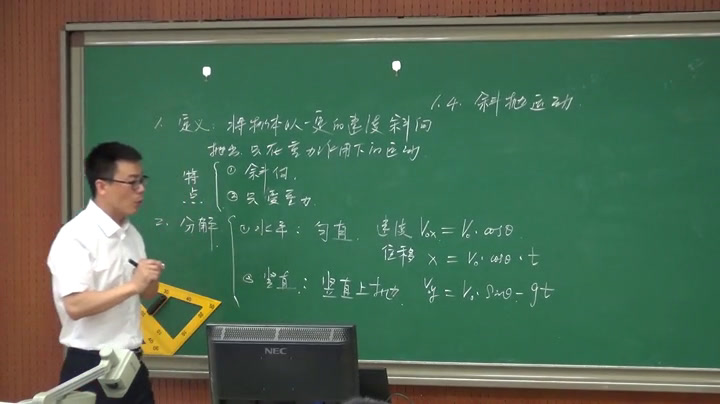 1.4. 斜抛运动
1. 定义: 将物体以一定的速度斜向
抛出只在重力作用下的运动
特点
① 斜向.
② 只受重力
2. 分解
① 水平: 匀直 速度 V₀ₓ = V₀·cosθ
位移 x = V₀·cosθ·t
② 竖直: 竖直上抛 Vy = V₀·Sinθ - gt
NEC